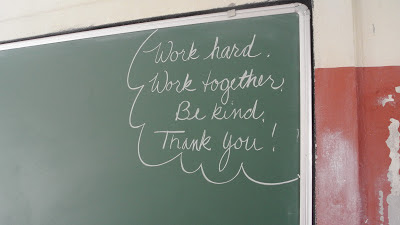 Work hard.
Work together.
Be kind.
Thank you!